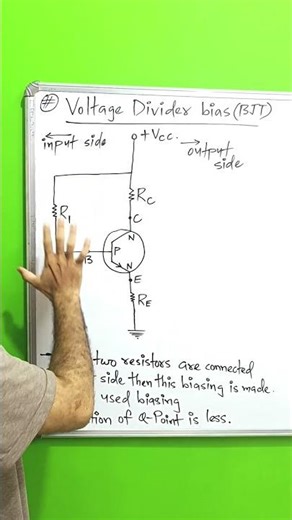 # Voltage Divider bias (BJT)
+Vcc.
input side
output side
RC
C
R1
N
P
B
N
E
RE
two resistors are connected
side then this biasing is made.
used biasing
of Q-Point is less.